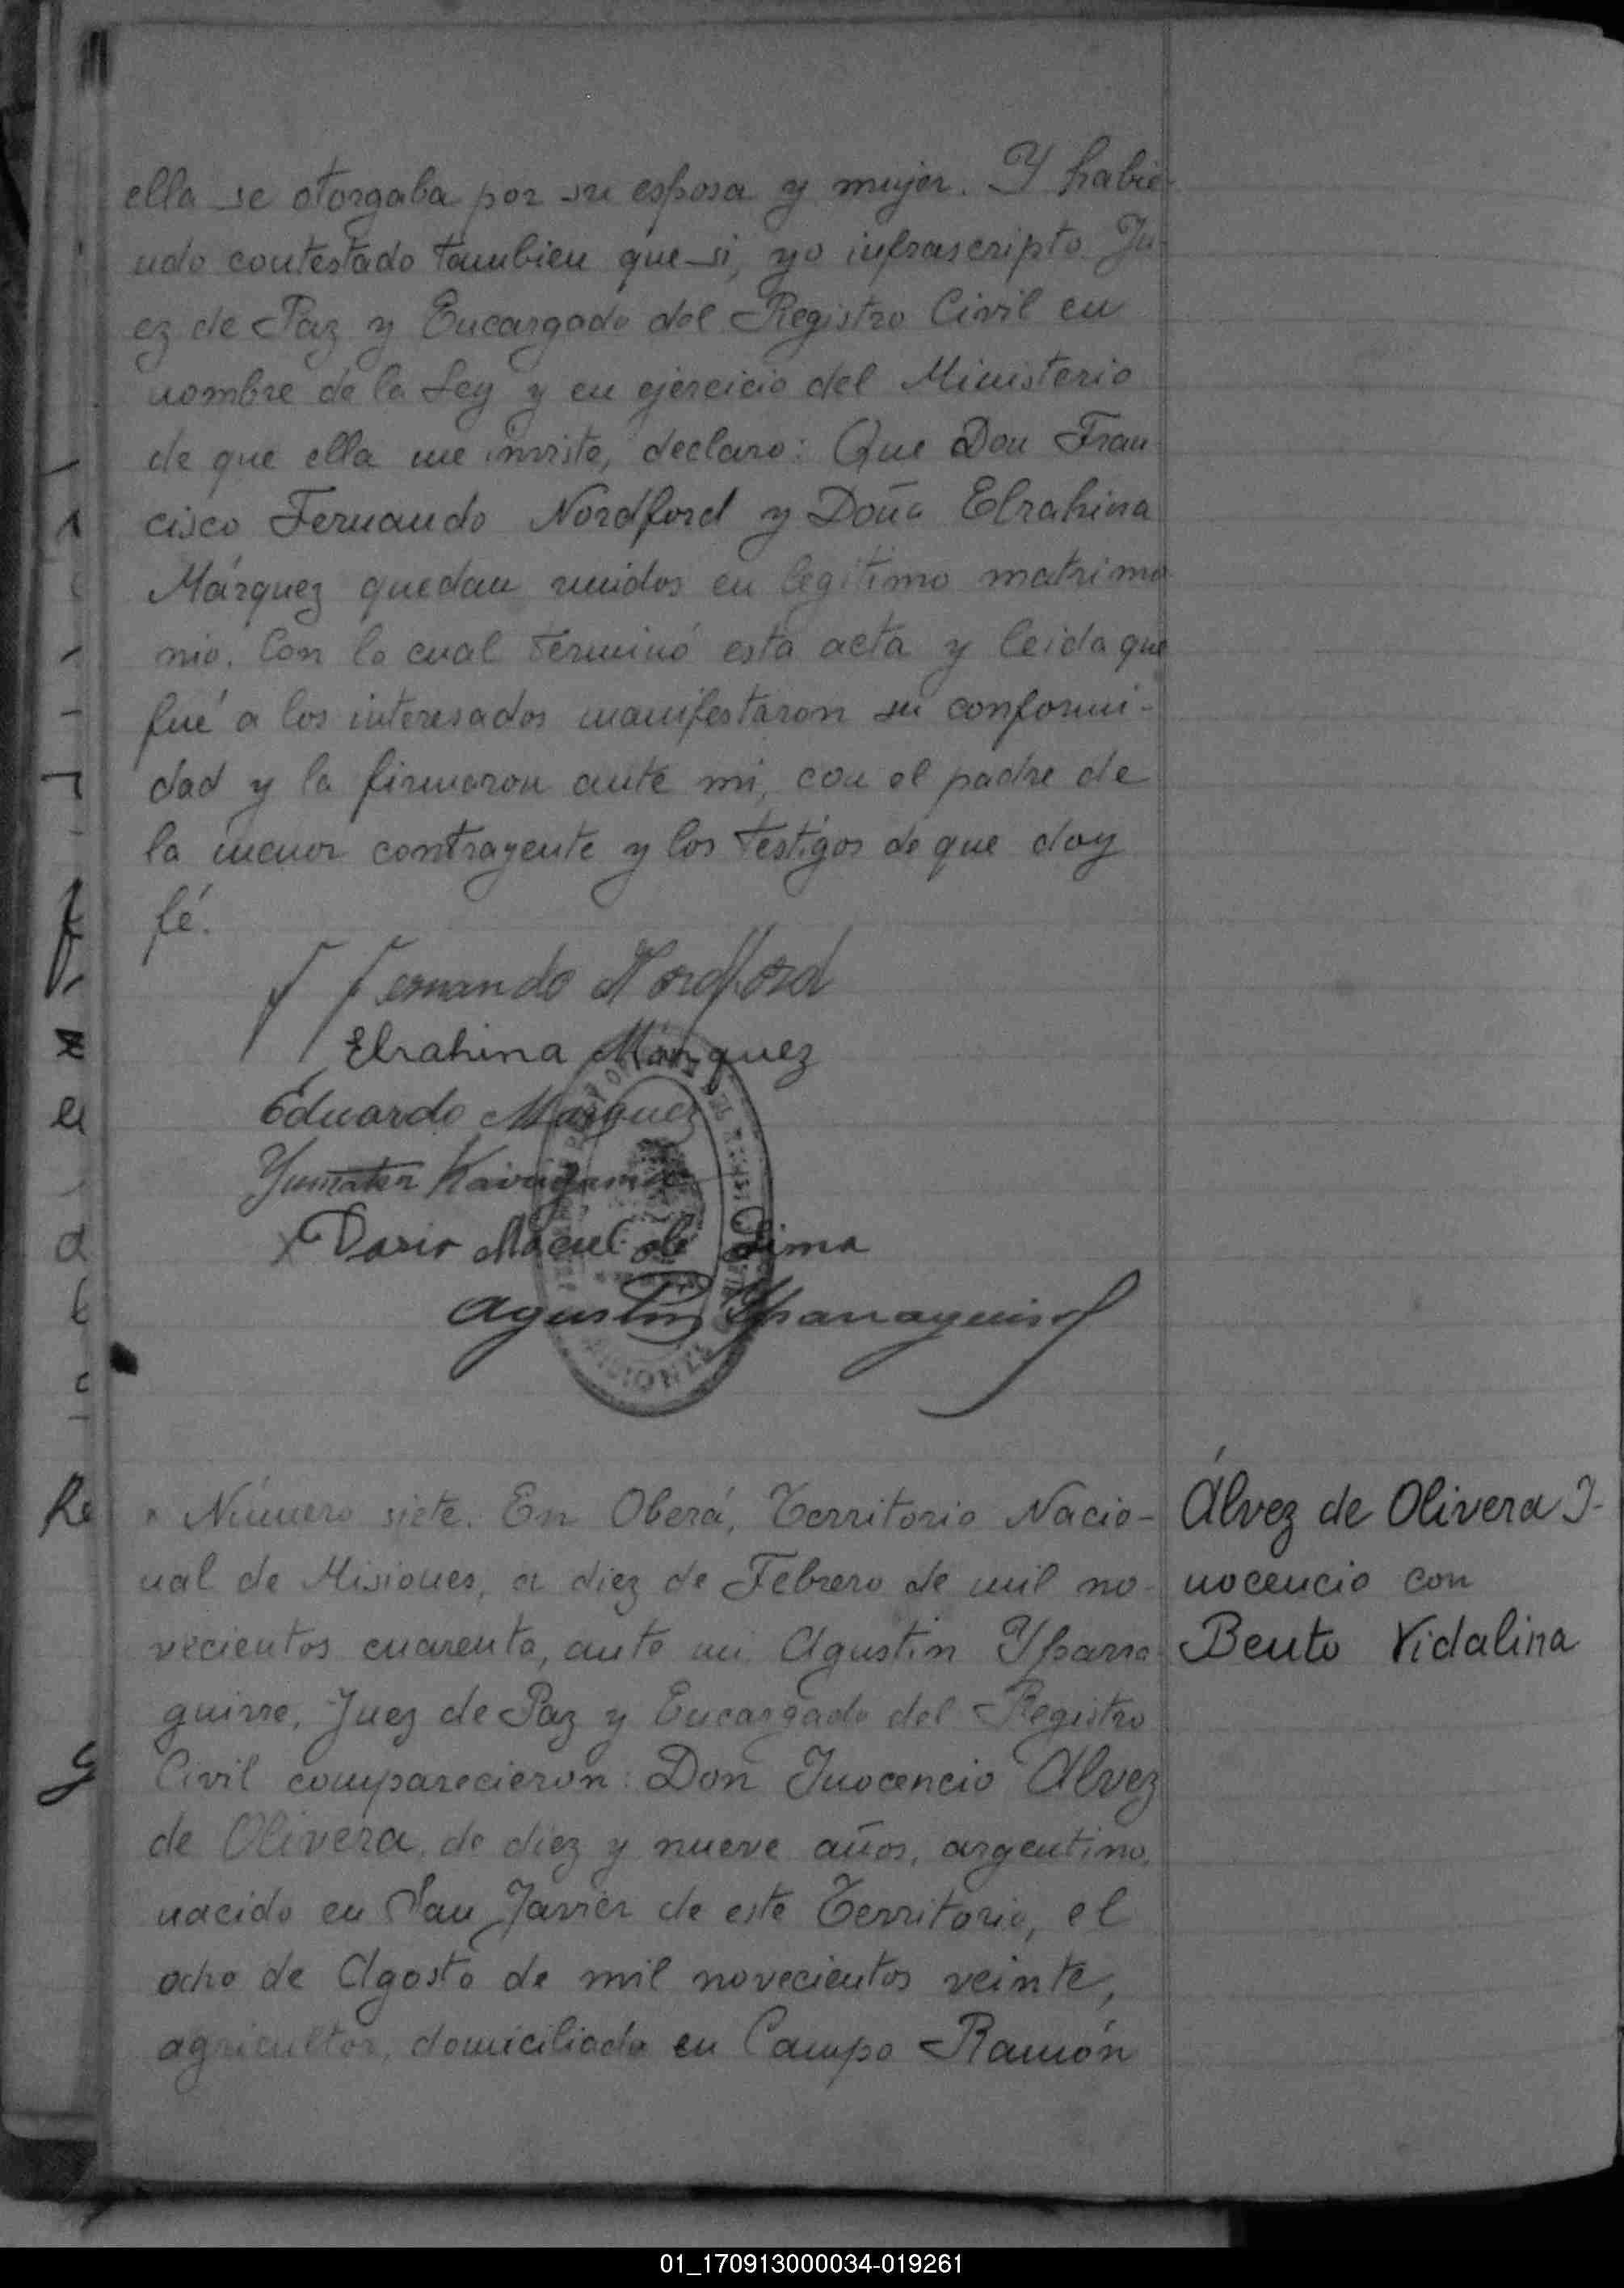 ella se otorgaba por su esposa y mujer. Y habie-
ndo contestado tambien que si, yo infrascripto Ju-
ez de Paz y Encargado del Registro Civil en
nombre de la Ley y en ejercicio del Ministerio
de que ella me inviste, declaro: Que Don Fran-
cisco Fernando Nordford y Doña Elrahina
Márquez quedan unidos en legitimo matrimo
nio. Con lo cual terminó esta acta y leida que
fué a los interesados manifestaron su conformi-
dad y la firmaron ante mi, con el padre de
la menor contrayente y los testigos de que doy
fé.
F Fernando Nordford
Elrahina Marquez
Eduardo Marquez
Dario Maciel de Lima
Agustin Yparraguirre
Número siete. En Oberá, Territorio Nacio-
nal de Misiones, a diez de Febrero de mil no-
vecientos cuarenta, ante mi Agustin Yparra
guirre, Juez de Paz y Encargado del Registro
Civil comparecieron: Don Inocencio Alvez
de Olivera, de diez y nueve años, argentino,
nacido en San Javier de este Territorio, el
ocho de Agosto de mil novecientos veinte,
agricultor, domiciliado en Campo Ramón
Álvez de Olivera I-
nocencio con
Bento Vidalina
01_170913000034-019261